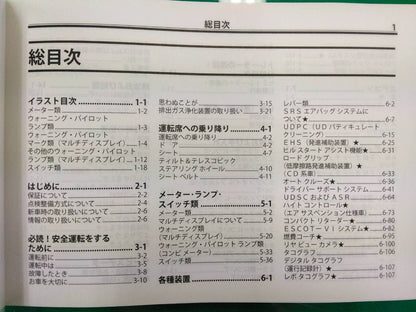 総目次
1
総目次
イラスト目次 1-1
メーター類 1-2
ウォーニング・パイロット
ランプ類 1-3
ウォーニング・パイロット
マーク類（マルチディスプレイ） 1-11
その他のウォーニング・パイロット
ランプ類（マルチディスプレイ） 1-12
スイッチ類 1-18
はじめに 2-1
保証について 2-1
点検整備方式について 2-1
新車時の取り扱いについて 2-1
情報の取り扱いについて 2-1
必読！安全運転をする
ために 3-1
運転前に 3-2
運転中は 3-5
故障したとき 3-8
お車を大切に 3-10
思わぬことが 3-15
排出ガス浄化装置の取り扱い 3-21
運転席への乗り降り 4-1
ドア 4-2
シート 4-7
ティルト＆テレスコピック
ステアリング ホイール 4-10
シート ベルト 4-11
メーター・ランプ・
スイッチ類 5-1
メーター類 5-2
マルチディスプレイについて 5-9
ウォーニング類
（マルチディスプレイ） 5-20
ウォーニング・パイロット ランプ類
（コンビ メーター） 5-33
スイッチ類 5-36
各種装置 6-1
レバー類 6-2
SRS エアバッグ システムに
ついて★ 6-7
UDPC（UD パティキュレート
クリーニング） 6-21
EHS（発進補助装置）★ 6-26
ヒルスタート アシスト機能★ 6-31
ロード グリップ
（低摩擦路発進補助装置）★
（CD 系車） 6-33
オート クルーズ★ 6-36
ドライバー サポート システム 6-41
UDSC および ASR 6-64
ハイト コントロール
（エア サスペンション仕様車） 6-73
コンパクト リターダー★ 6-83
ESCOT－VI システム★ 6-87
燃費コーチ★ 6-99
リヤ ビュー カメラ★ 6-106
タコグラフ 6-107
デジタル タコグラフ
（運行記録計）★ 6-107
レボ タコグラフ★ 6-107